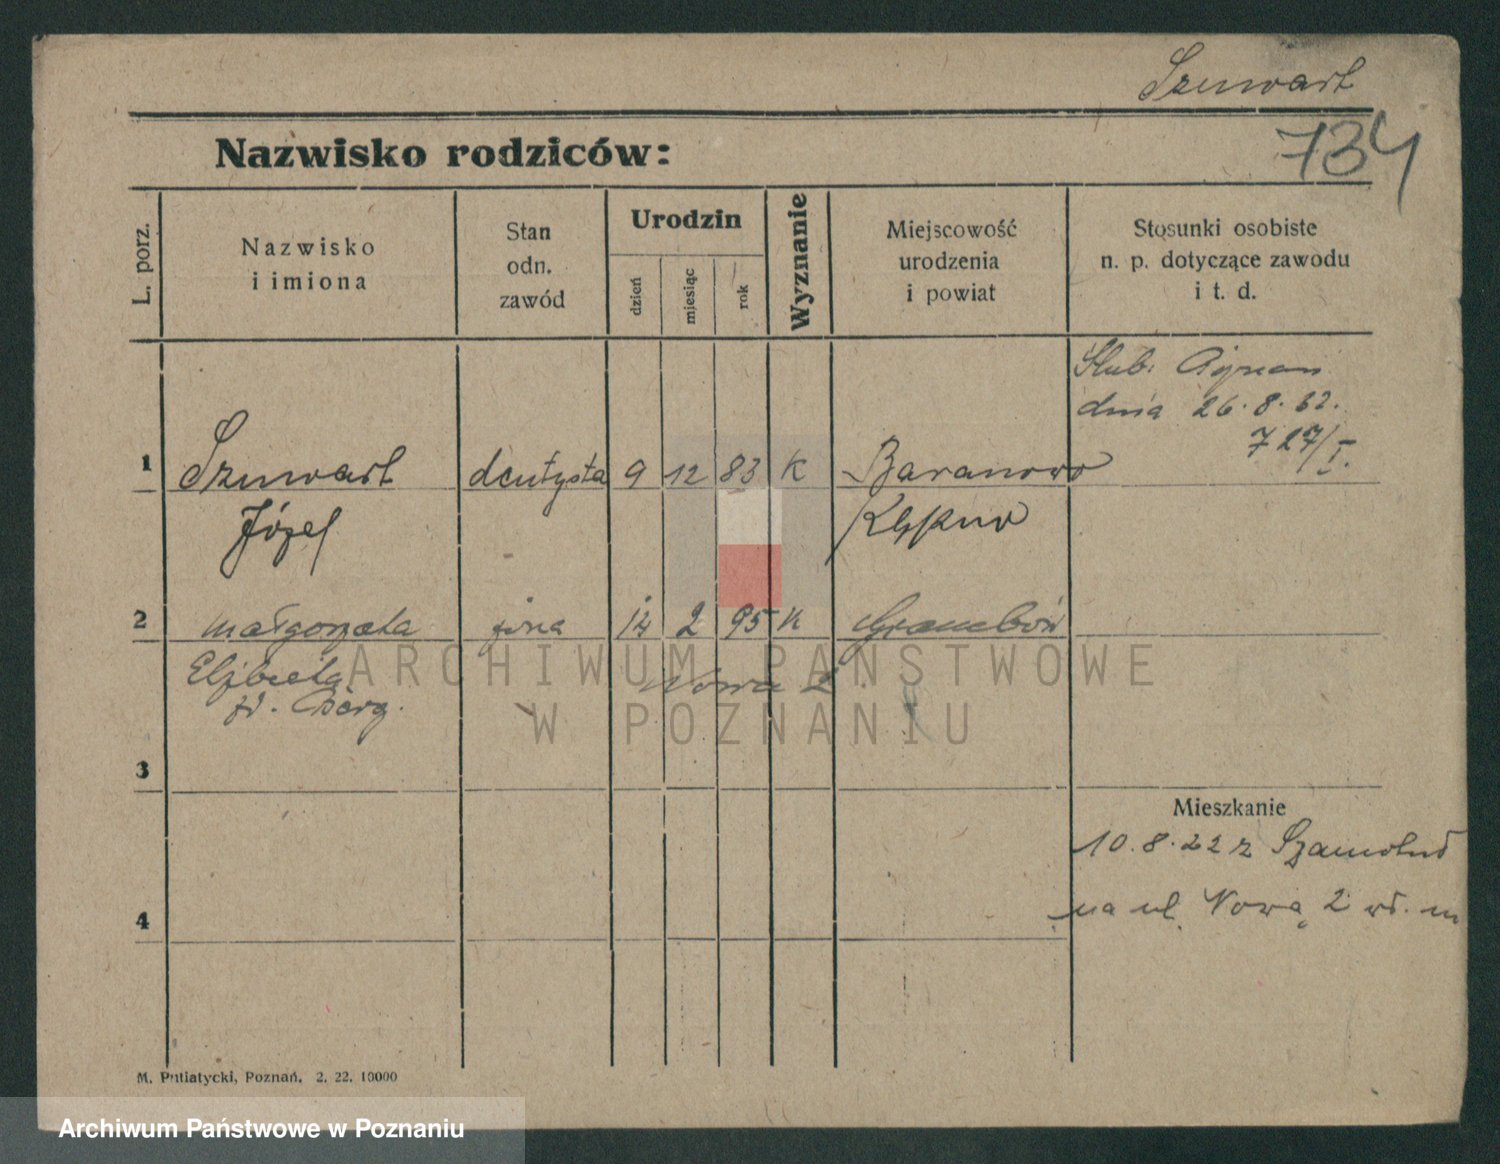 Szuwart
734
Nazwisko rodziców:
L. porz.
Nazwisko
i imiona
Stan
odn.
zawód
Urodzin
dzień
miesiąc
rok
Wyznanie
Miejscowość
urodzenia
i powiat
Stosunki osobiste
n. p. dotyczące zawodu
i t. d.
Ślub:
dnia 26. 8. 
727/I.
1 Szuwart dentysta 9 12 83 K Baranowo
Józef Kępno
2 Małgorzata żona 14 2 95 K
Elżbieta Nowa 2
zd.
ARCHIWUM PAŃSTWOWE
W POZNANIU
3
Mieszkanie
10. 8. 22 z Szamotuł
4 na ul. Nowa 2
M. Putiatycki, Poznań. 2. 22. 10000
Archiwum Państwowe w Poznaniu